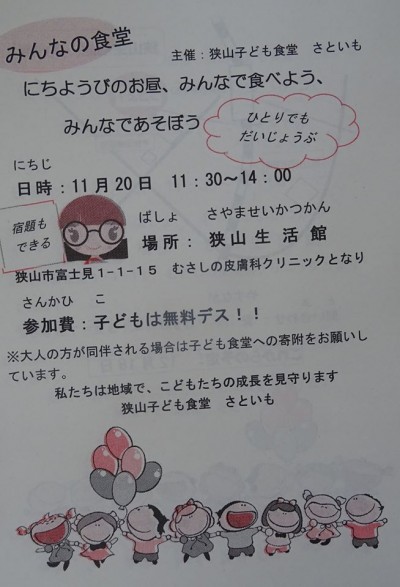 みんなの食堂
主催：狭山子ども食堂　さといも
にちようびのお昼、みんなで食べよう、
みんなであそぼう
ひとりでも
だいじょうぶ
にちじ
日時：11月20日　11：30～14：00
宿題も
できる
ばしょ　さやませいかつかん
場所：狭山生活館
狭山市富士見1－1－15　むさしの皮膚科クリニックとなり
さんかひ　こ
参加費：子どもは無料デス！！
※大人の方が同伴される場合は子ども食堂への寄附をお願いし
ています。
私たちは地域で、こどもたちの成長を見守ります
狭山子ども食堂　さといも